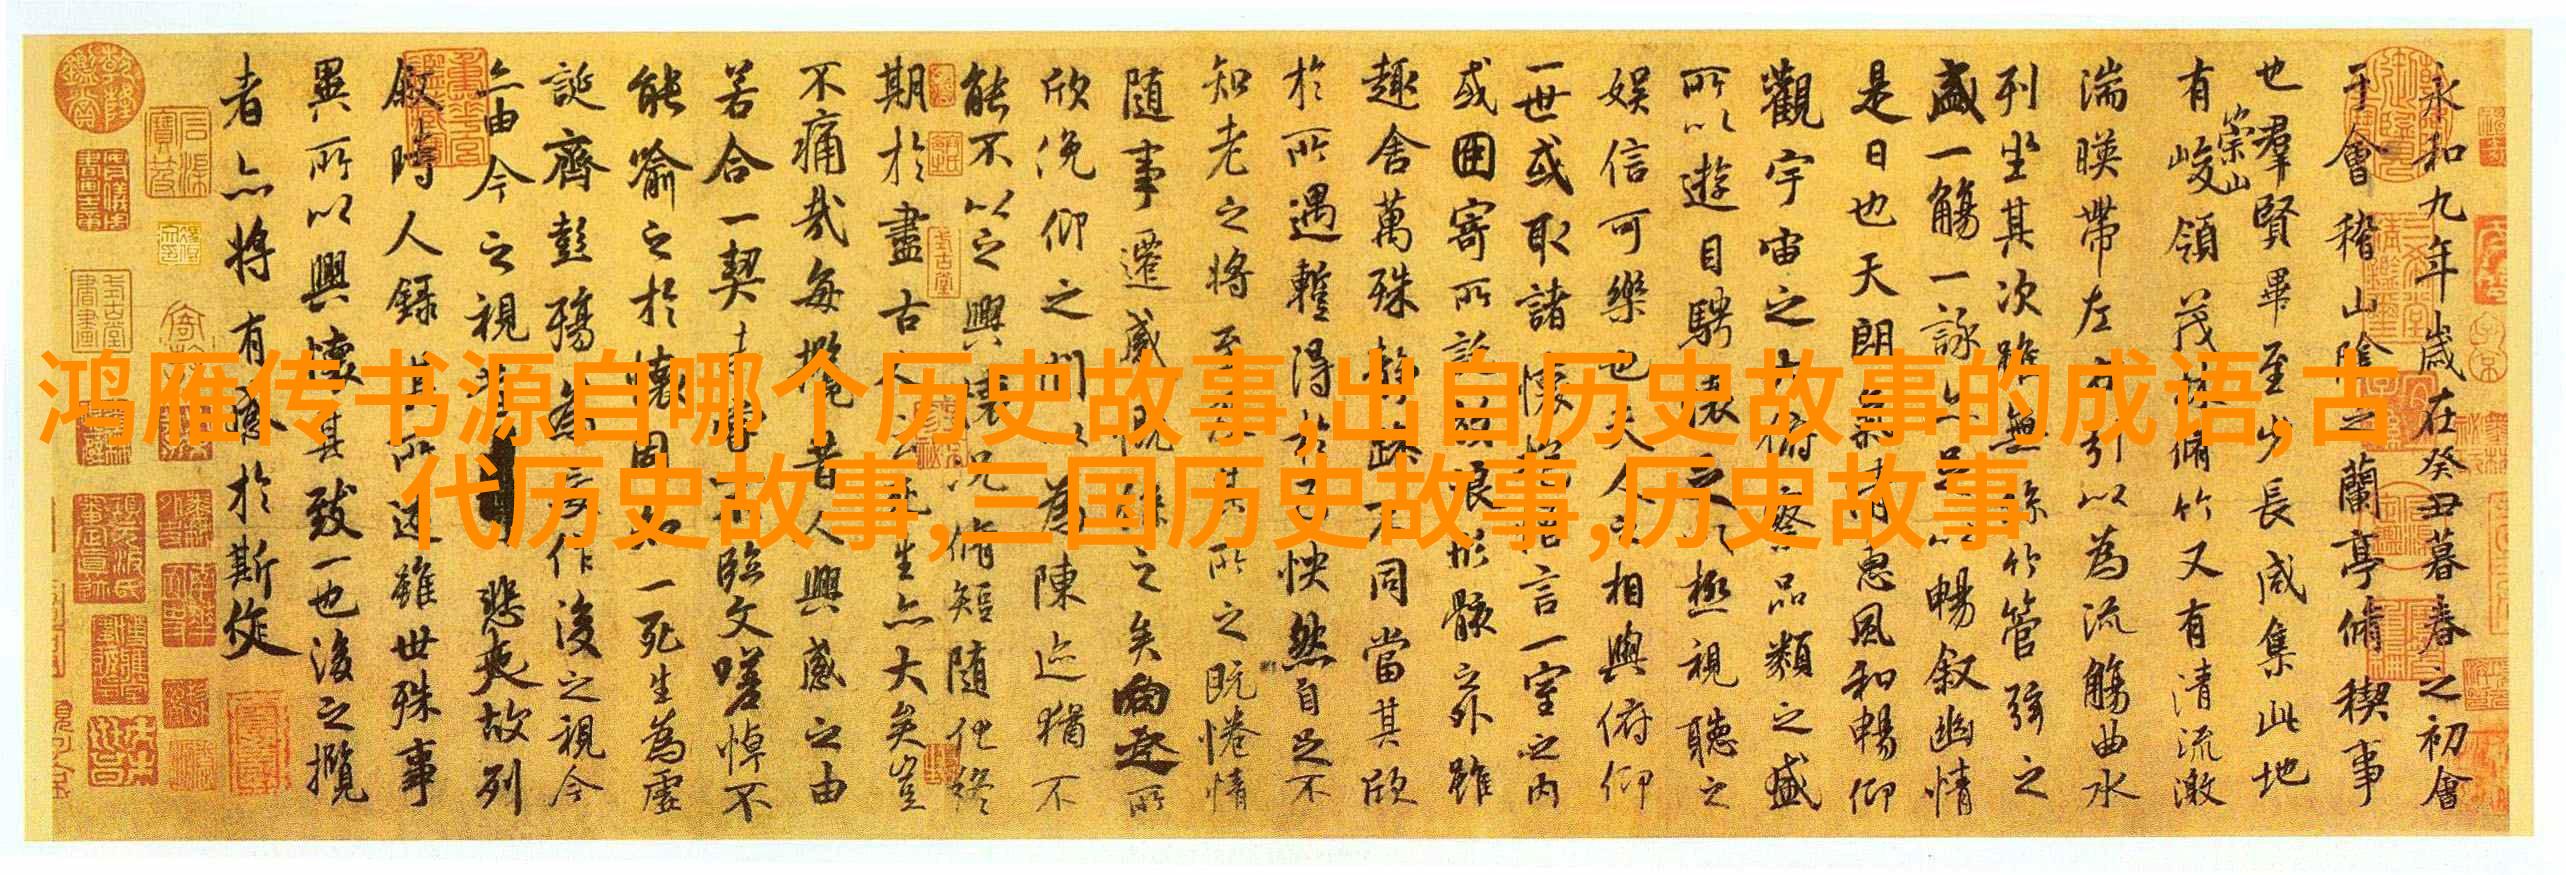 鸿雁传书源自哪个历史故事,出自历史故事的成语,古
代历史故事,三国历史故事,历史故事
永和九年歲在癸丑暮春之初會
于會稽山陰之蘭亭脩稧事
也羣賢畢至少長咸集此地
有崇山峻領茂林脩竹又有清流激
湍暎帶左右引以為流觴曲水
列坐其次雖無絲竹管弦之
盛一觴一詠亦足以暢叙幽情
是日也天朗氣清惠風和暢仰
觀宇宙之大俯察品類之盛
所以遊目騁懷足以極視聽之
娛信可樂也夫人之相與俯仰
一世或取諸懷抱悟言一室之內
或因寄所託放浪形骸之外雖
趣舍萬殊靜躁不同當其欣
於所遇暫得於己怏然自足不
知老之將至及其所之既惓情
隨事遷感慨係之矣向之所
欣俛仰之閒以為陳迹猶不
能不以之興懷況脩短隨化終
期於盡古人云死生亦大矣豈
不痛哉每攬昔人興感之由
若合一契未嘗不臨文嗟悼不
能喻之於懷固知一死生為虛
誕齊彭殤為妄作後之視今
亦由今之視昔悲夫故列
叙時人錄其所述雖世殊事
異所以興懷其致一也後之攬
者亦將有感於斯文